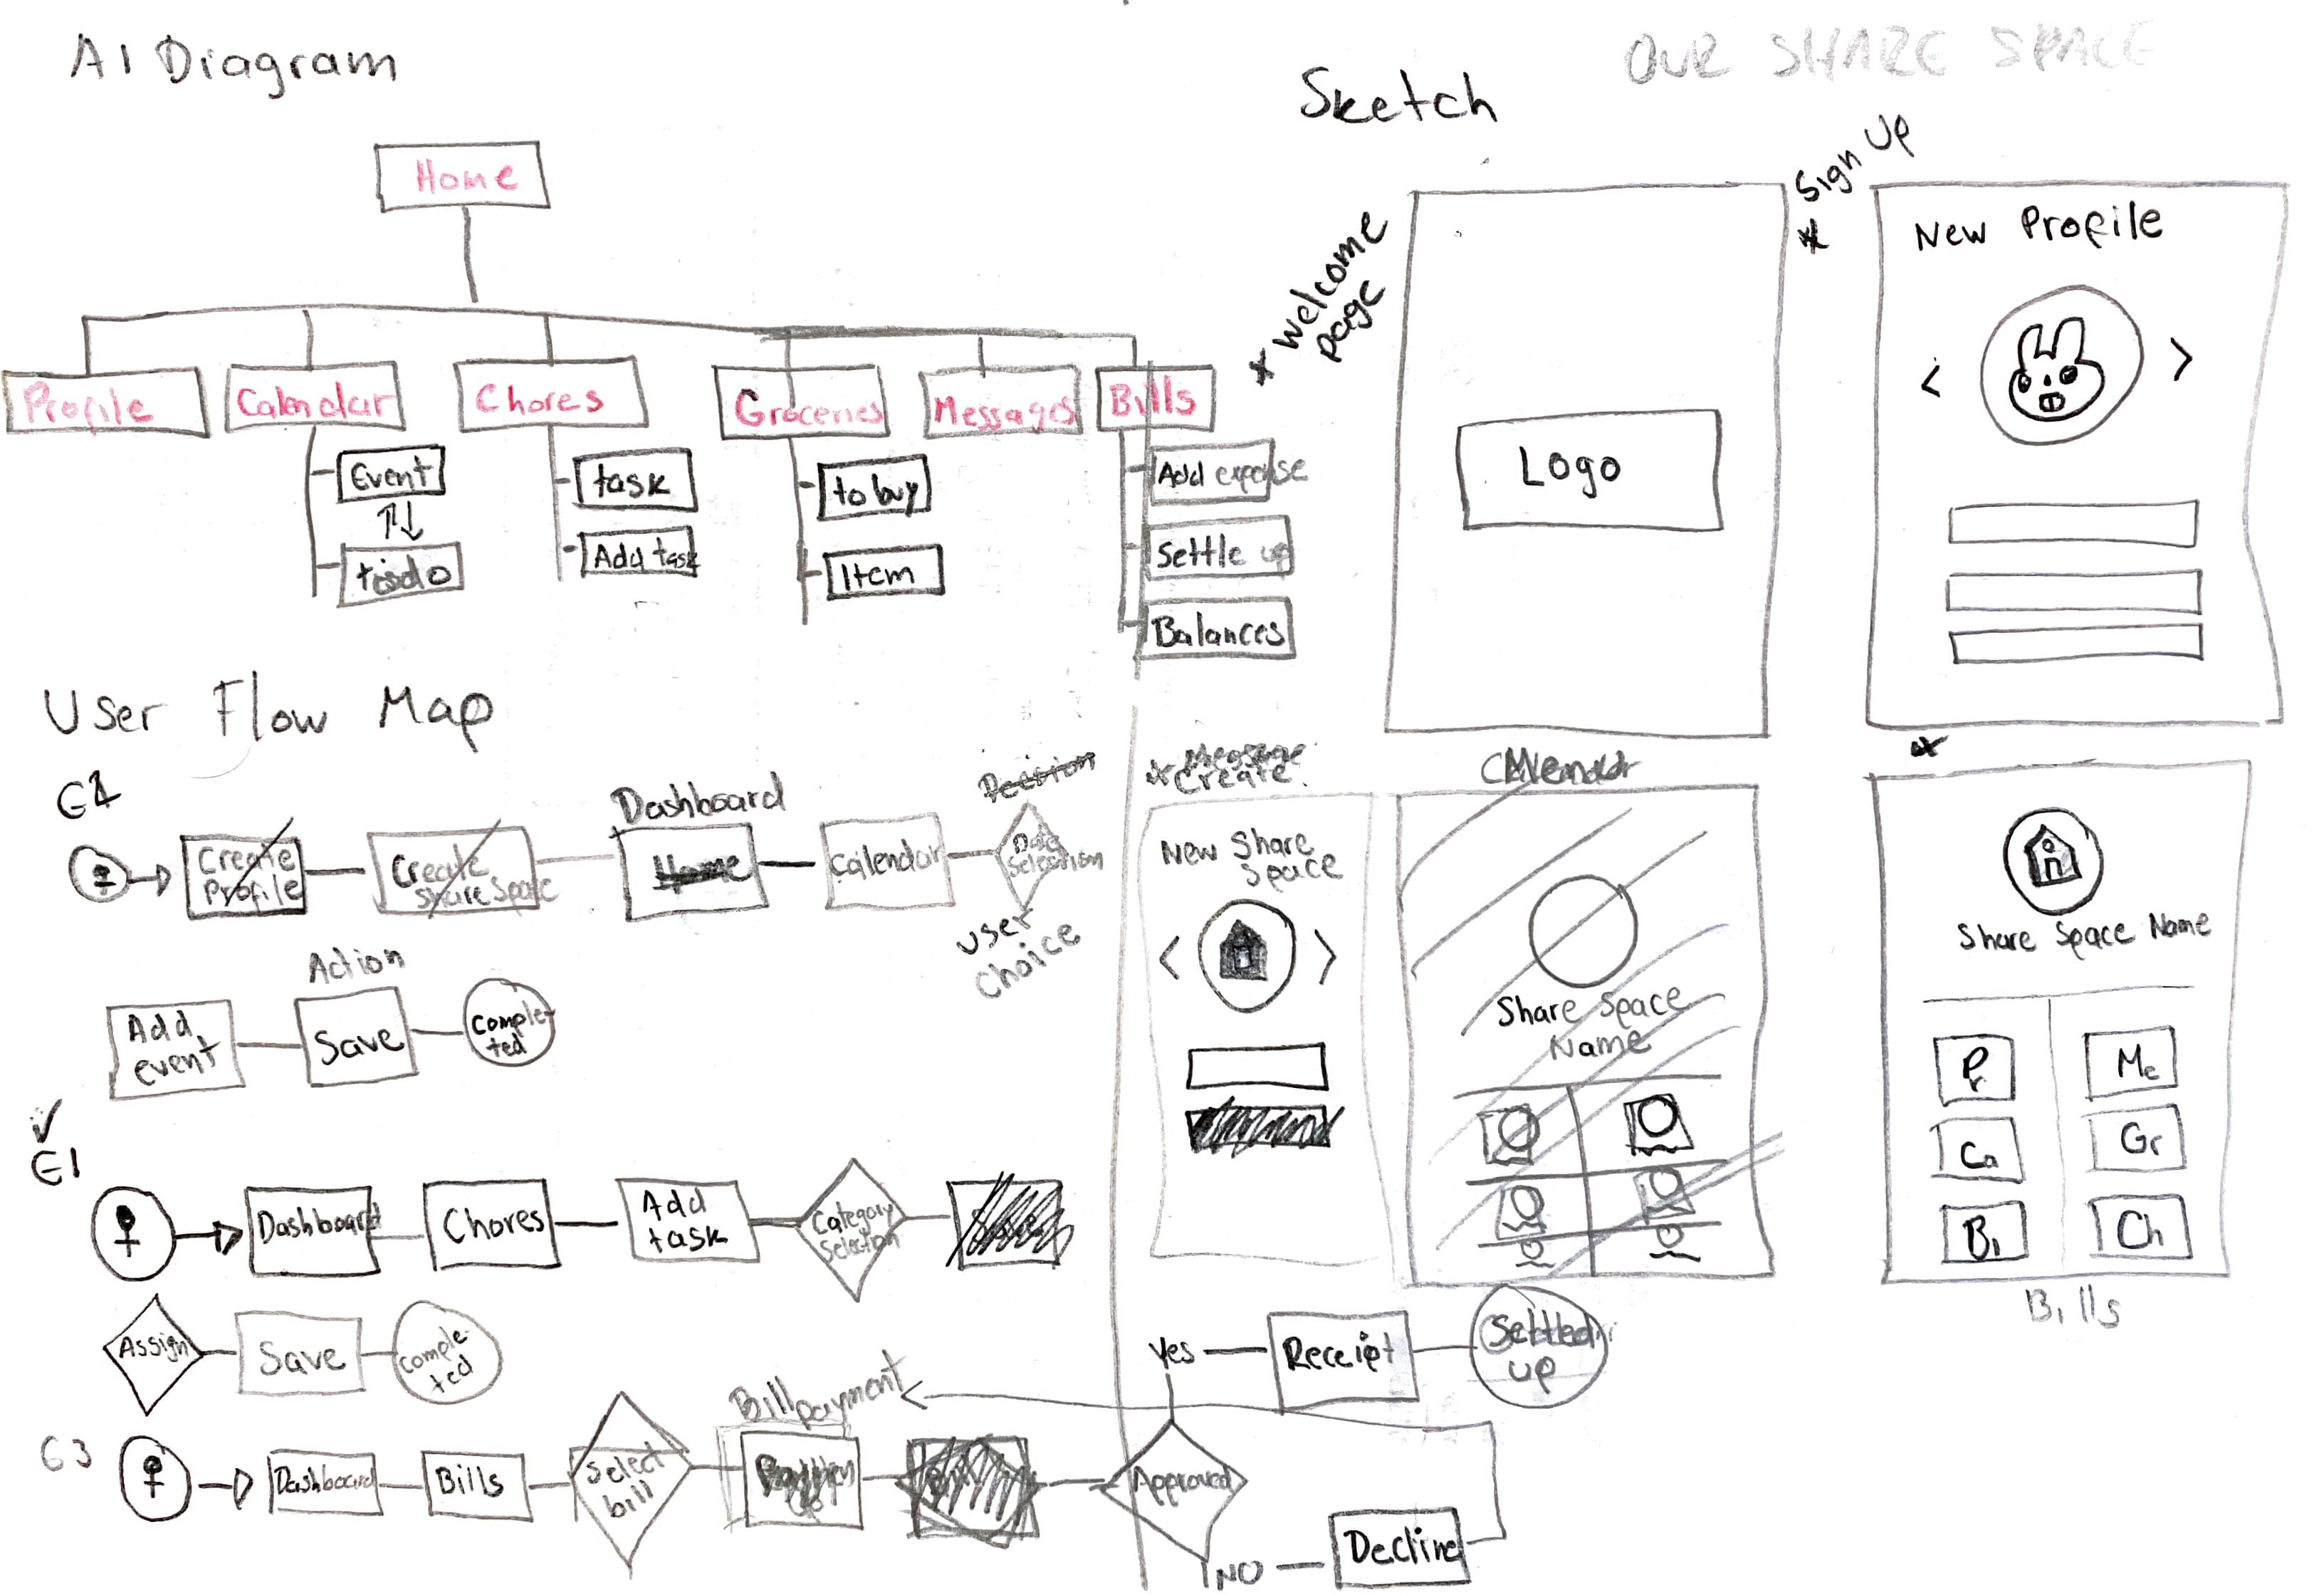 AI Diagram
Home
Profile
Calendar
Chores
Groceries
Messages
Bills
Event
task
Add task
to buy
Item
Add expense
Settle up
Balances
User Flow Map
Create
Profile
Create
Share Space
Dashboard
Home
Calendar
Decision
Date
Selection
User
Choice
Add
event
Action
Save
Comple-
ted
Dashboard
Chores
Add
task
Category
Selection
Assign
Save
Comple-
ted
G3
Dashboard
Bills
Select
bill
Bill
payment
Approved
Yes
Receipt
Settled
up
NO
Decline
OUR SHARE SPACE
Sketch
* Welcome
page
Logo
* Sign Up
New Profile
<
>
* Message
Create
New Share
Space
<
>
Share Space
Name
*
Share Space Name
Pr
Me
Ca
Gr
Bi
Ch
Bills